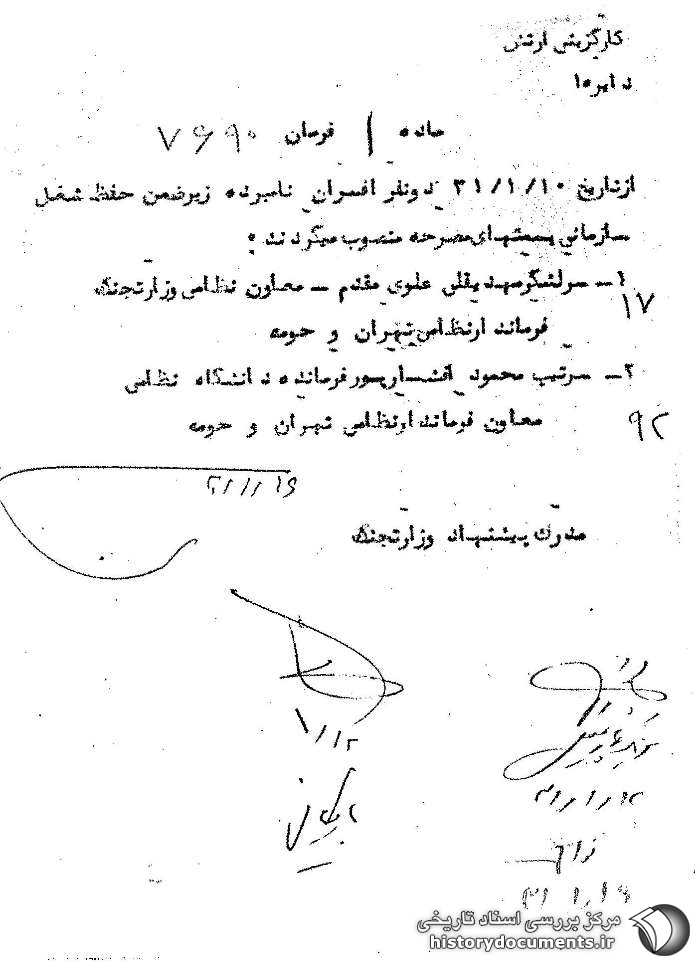 کارگزینی ارتش
دایره ۱
ماده ۱ فرمان ۷۶۹۰
از تاریخ ۳۱/۱/۱۰ دونفر افسران نامبرده زیر ضمن حفظ شغل
سازمانی بسمتهای مصرحه منصوب میگردند :
۱ـ سرلشگر مهدیقلی علوی مقدم ـ معاون نظامی وزارتجنگ
۱۷
فرماندار نظامی تهران و حومه
۲ـ سرتیپ محمود افشارپور فرمانده دانشگاه نظامی
معاون فرماندار نظامی تهران و حومه
۹۲
۳۱/۱/۱۶
مدرک پیشنهاد وزارتجنگ
۱/۱۲
۳۱/۱/۱۲
۳۱/۱/۱۶
مرکز بررسی اسناد تاریخی
historydocuments.ir